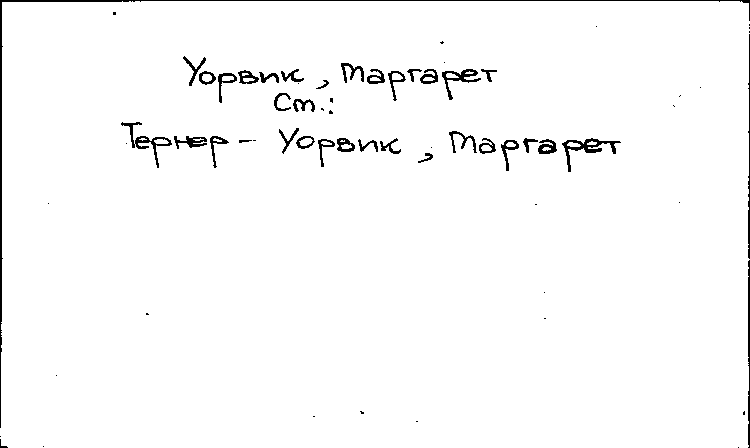 Уорвик, Маргарет
См.:
Тернер - Уорвик, Маргарет